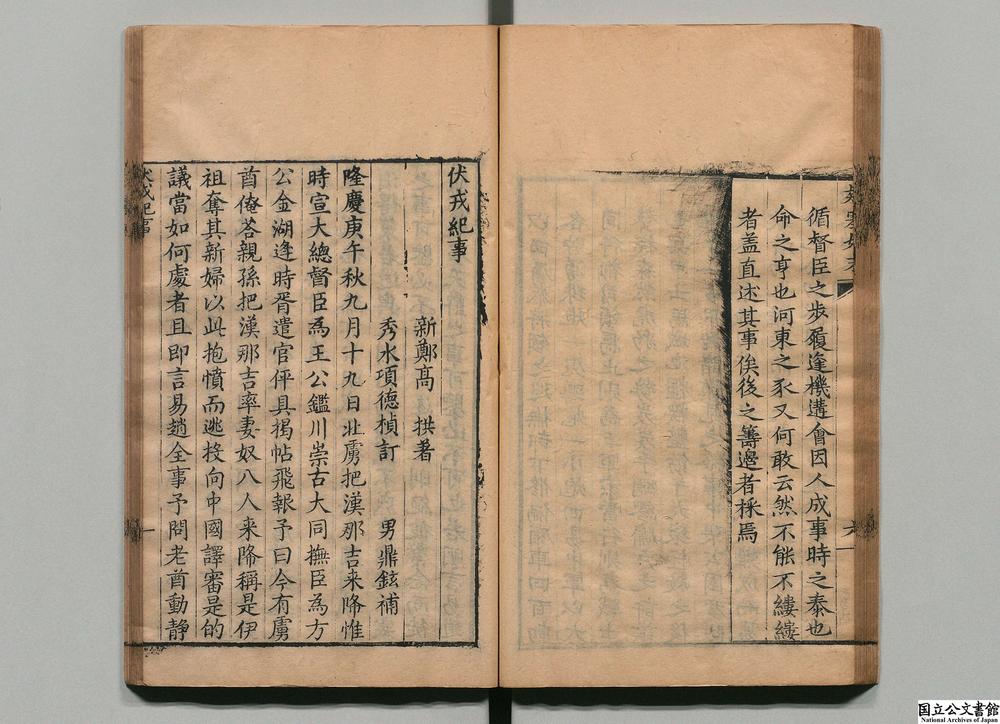 循督臣之步履逢機遘會因人成事時之泰也
命之亨也河東之豕又何敢云然不能不縷縷
者盖直述其事俟後之籌邊者採焉
六
伏戎紀事
新鄭高　拱著
秀水項德楨訂　男鼎鉉補
隆慶庚午秋九月十九日北虜把漢那吉来降惟
時宣大總督臣為王公鑑川崇古大同撫臣為方
公金湖逢時胥遣官伻具揭帖飛報予曰今有虜
酋俺荅親孫把漢那吉率妻奴八人来降稱是伊
祖奪其新婦以此抱憤而逃投向中國譯審是的
議當如何處者且即言易趙全事予問老酋動静
伏戎紀事
一
国立公文書館
National Archives of Japan